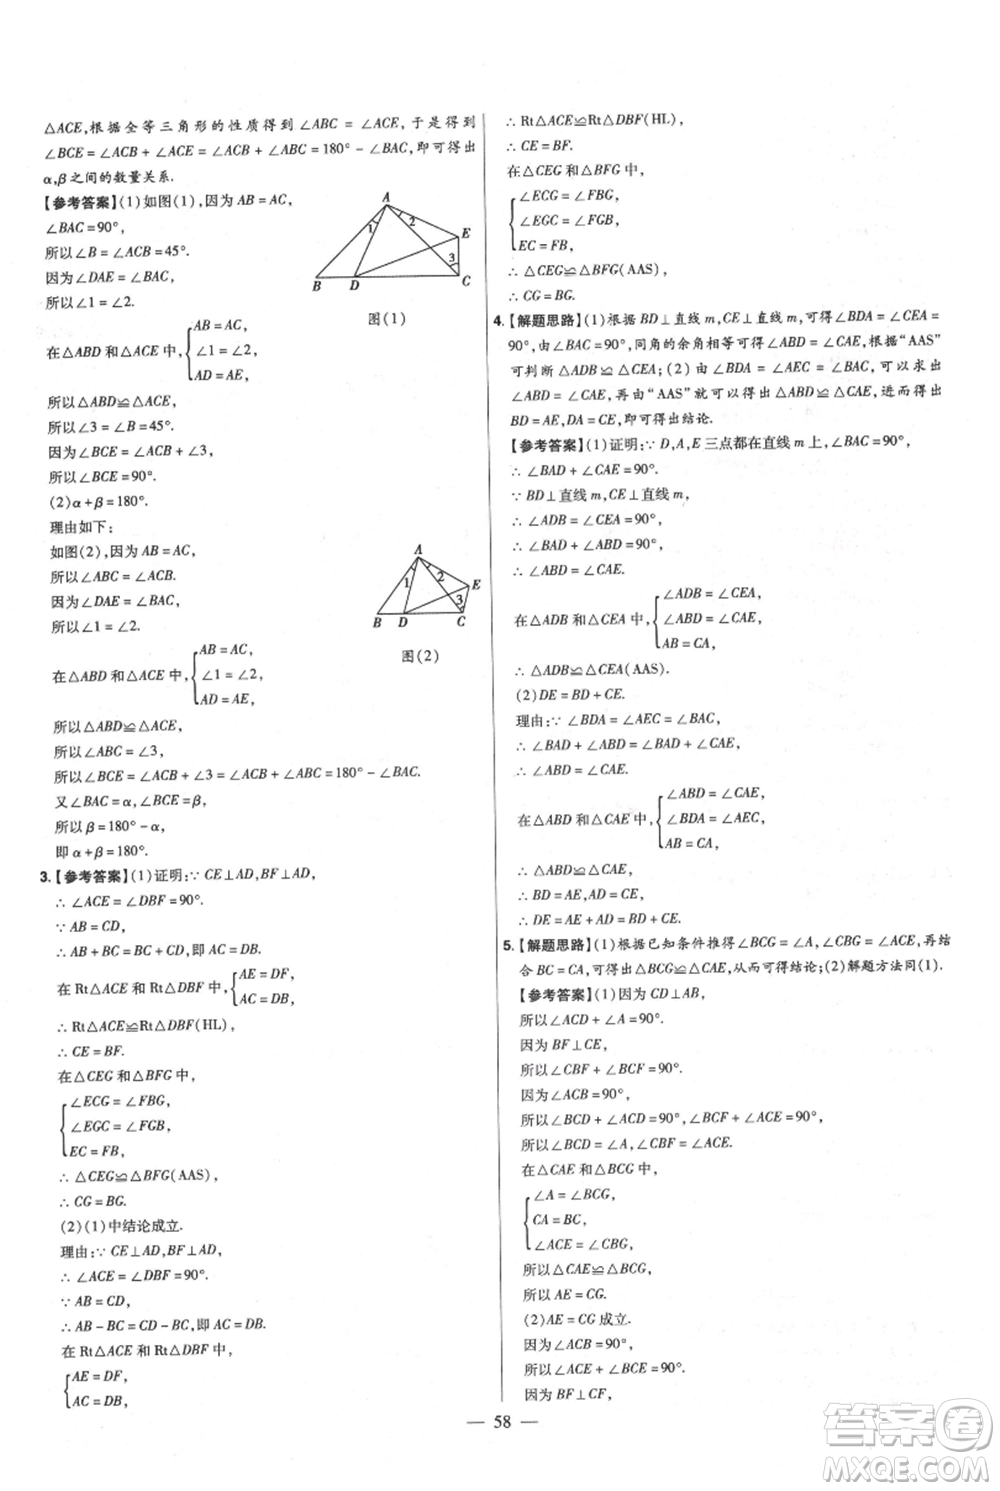 △ACE,根据全等三角形的性质得到∠ABC = ∠ACE,于是得到
∠BCE = ∠ACB + ∠ACE = ∠ACB + ∠ABC = 180° - ∠BAC,即可得出
α,β之间的数量关系.
【参考答案】(1)如图(1),因为 AB = AC,
∠BAC = 90°,
所以∠B = ∠ACB = 45°.
因为∠DAE = ∠BAC,
所以∠1 = ∠2.
A
1
2
E
3
B
D
C
图(1)
在△ABD 和△ACE 中,
AB = AC,
∠1 = ∠2,
AD = AE,
所以△ABD≌△ACE,
所以∠3 = ∠B = 45°.
因为∠BCE = ∠ACB + ∠3,
所以∠BCE = 90°.
(2)α + β = 180°.
理由如下:
如图(2),因为 AB = AC,
所以∠ABC = ∠ACB.
因为∠DAE = ∠BAC,
所以∠1 = ∠2.
A
1
2
E
3
B
D
C
图(2)
在△ABD 和△ACE 中,
AB = AC,
∠1 = ∠2,
AD = AE,
所以△ABD≌△ACE,
所以∠ABC = ∠3,
所以∠BCE = ∠ACB + ∠3 = ∠ACB + ∠ABC = 180° - ∠BAC.
又∠BAC = α,∠BCE = β,
所以 β = 180° - α,
即 α + β = 180°.
3.【参考答案】(1)证明:∵ CE⊥AD,BF⊥AD,
∴ ∠ACE = ∠DBF = 90°.
∵ AB = CD,
∴ AB + BC = BC + CD,即 AC = DB.
在 Rt△ACE 和 Rt△DBF 中,
AE = DF,
AC = DB,
∴ Rt△ACE≌Rt△DBF(HL),
∴ CE = BF.
在△CEG 和△BFG 中,
∠ECG = ∠FBG,
∠EGC = ∠FGB,
EC = FB,
∴ △CEG≌△BFG(AAS),
∴ CG = BG.
(2)(1)中结论成立.
理由:∵ CE⊥AD,BF⊥AD,
∴ ∠ACE = ∠DBF = 90°.
∵ AB = CD,
∴ AB - BC = CD - BC,即 AC = DB.
在 Rt△ACE 和 Rt△DBF 中,
AE = DF,
AC = DB,
∴ Rt△ACE≌Rt△DBF(HL),
∴ CE = BF.
在△CEG 和△BFG 中,
∠ECG = ∠FBG,
∠EGC = ∠FGB,
EC = FB,
∴ △CEG≌△BFG(AAS),
∴ CG = BG.
4.【解题思路】(1)根据 BD⊥直线 m,CE⊥直线 m,可得∠BDA = ∠CEA =
90°,由∠BAC = 90°,同角的余角相等可得∠ABD = ∠CAE,根据“AAS”
可判断△ADB≌△CEA;(2)由∠BDA = ∠AEC = ∠BAC,可以求出
∠ABD = ∠CAE,再由“AAS”就可以得出△ABD≌△CAE,进而得出
BD = AE,DA = CE,即可得出结论.
【参考答案】(1)证明:∵ D,A,E 三点都在直线 m 上,∠BAC = 90°,
∴ ∠BAD + ∠CAE = 90°.
∵ BD⊥直线 m,CE⊥直线 m,
∴ ∠ADB = ∠CEA = 90°,
∴ ∠BAD + ∠ABD = 90°,
∴ ∠ABD = ∠CAE.
在△ADB 和△CEA 中,
∠ADB = ∠CEA,
∠ABD = ∠CAE,
AB = CA,
∴ △ADB≌△CEA(AAS).
(2)DE = BD + CE.
理由:∵ ∠BDA = ∠AEC = ∠BAC,
∴ ∠BAD + ∠ABD = ∠BAD + ∠CAE,
∴ ∠ABD = ∠CAE.
在△ABD 和△CAE 中,
∠ABD = ∠CAE,
∠BDA = ∠AEC,
AB = CA,
∴ △ABD≌△CAE,
∴ BD = AE,AD = CE,
∴ DE = AE + AD = BD + CE.
5.【解题思路】(1)根据已知条件推得∠BCG = ∠A,∠CBG = ∠ACE,再结
合 BC = CA,可得出△BCG≌△CAE,从而可得结论;(2)解题方法同(1).
【参考答案】(1)因为 CD⊥AB,
所以∠ACD + ∠A = 90°.
因为 BF⊥CE,
所以∠CBF + ∠BCF = 90°.
因为∠ACB = 90°,
所以∠BCD + ∠ACD = 90°,∠BCF + ∠ACE = 90°,
所以∠BCD = ∠A,∠CBF = ∠ACE.
在△CAE 和△BCG 中,
∠A = ∠BCG,
CA = BC,
∠ACE = ∠CBG,
所以△CAE≌△BCG,
所以 AE = CG.
(2)AE = CG 成立.
因为∠ACB = 90°,
所以∠ACE + ∠BCE = 90°.
因为 BF⊥CF,
58
答案圈
MXQE.COM